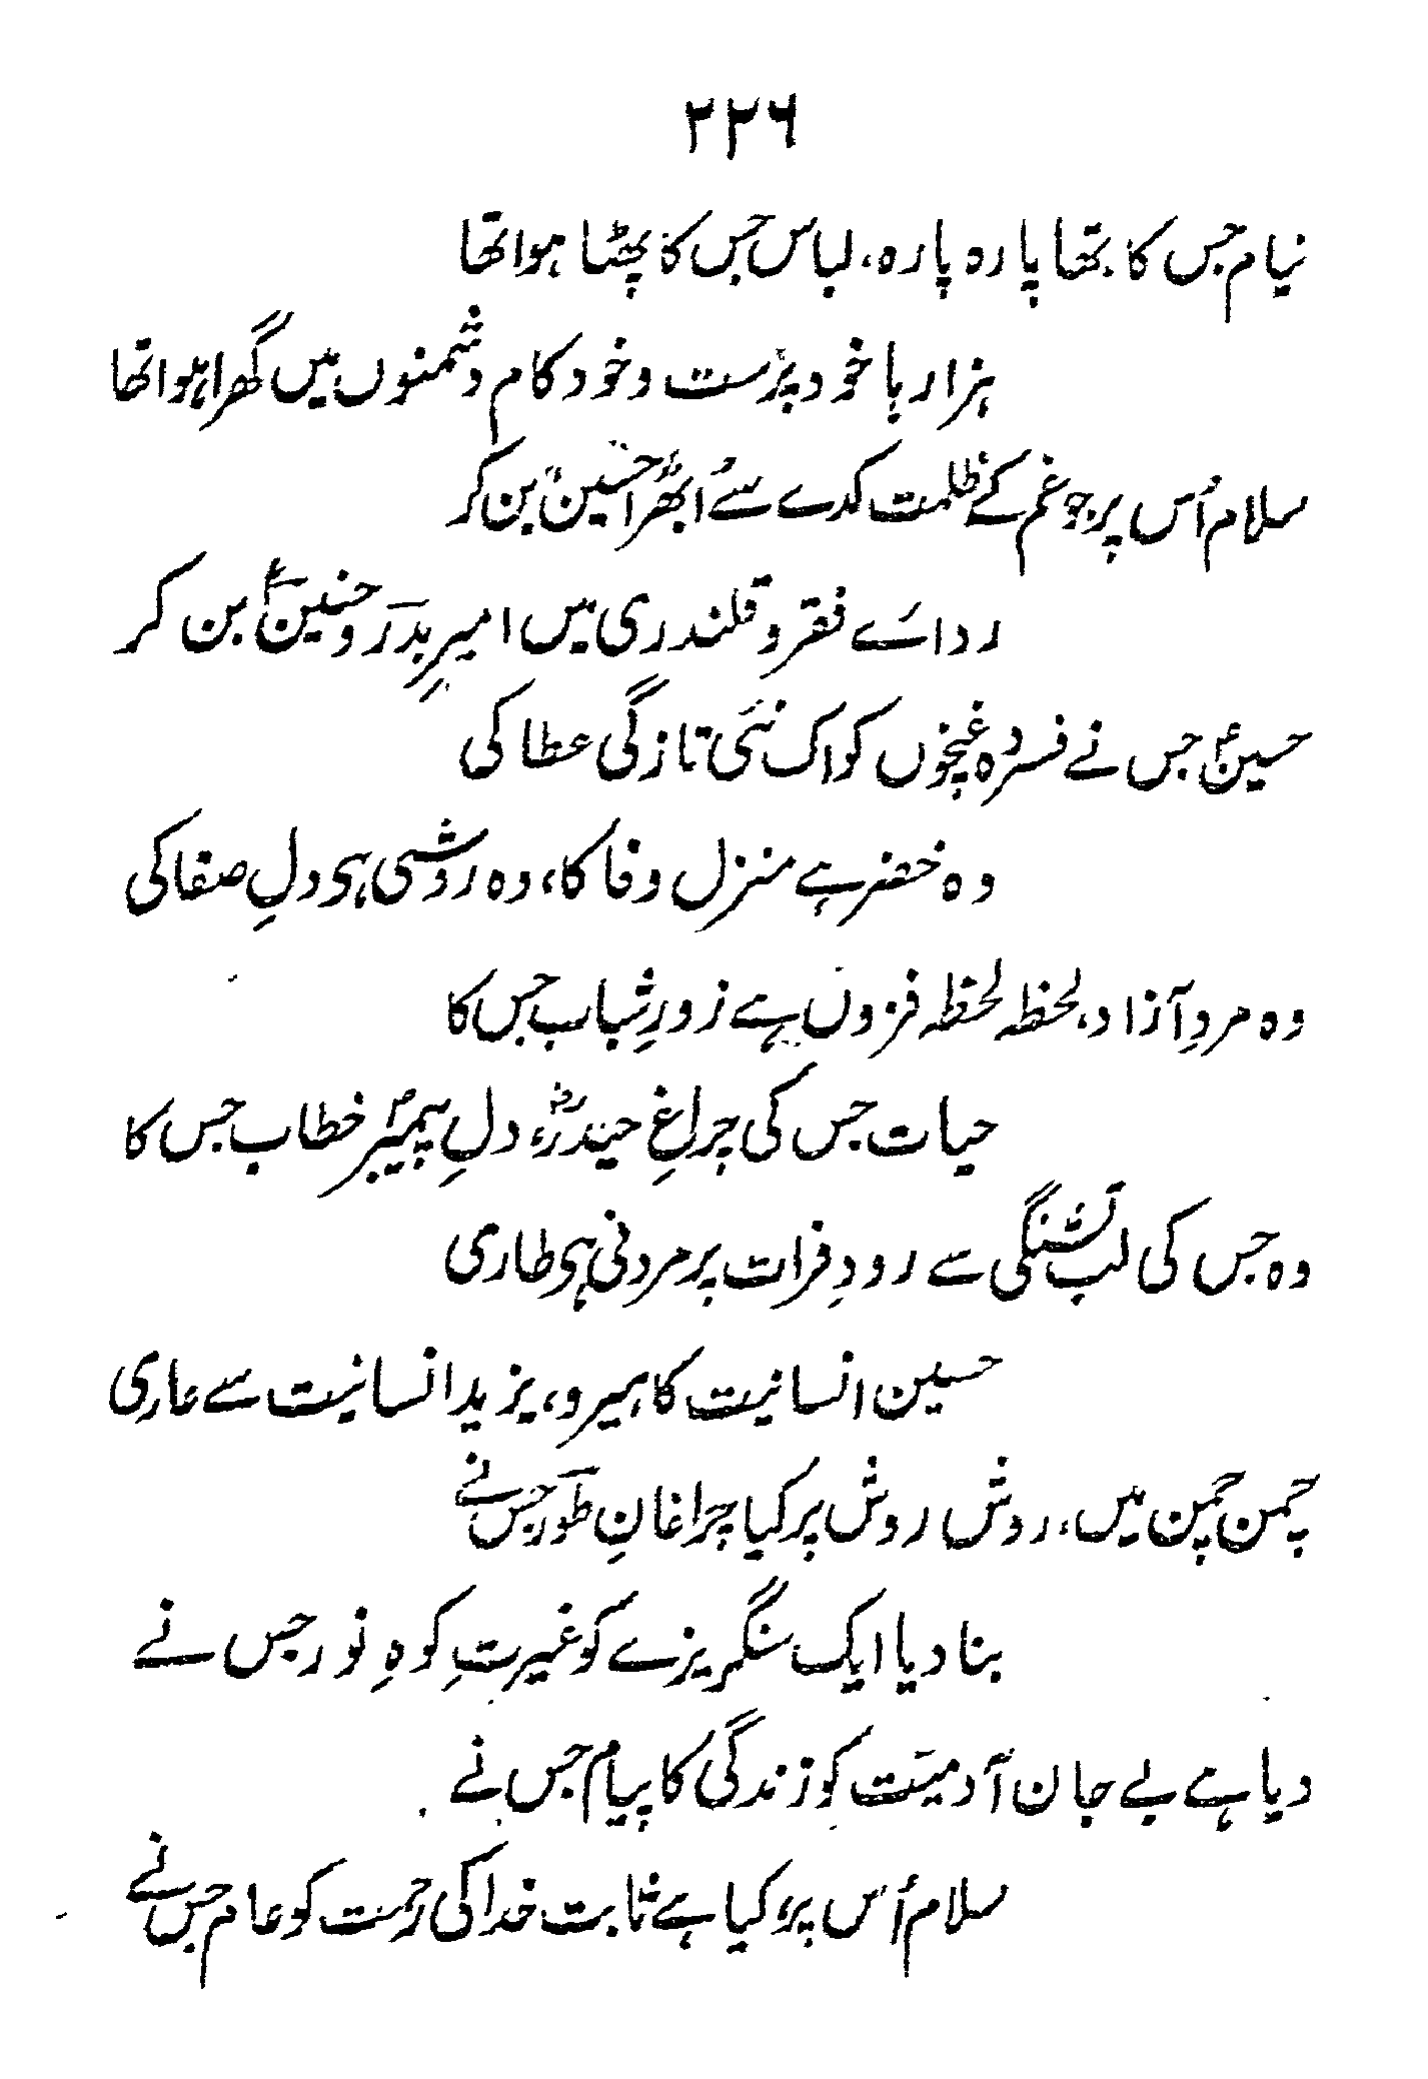 ۲۲۶
نیام جس کا تھا پارہ پارہ، لباس جس کا پھٹا ہوا تھا
ہزارہا خود پرست و خود کام دشمنوں میں گھرا ہوا تھا
سلام اُس پر جو غم کے ظلمت کدے سے اُبھرا حسینؑ بن کر
ردائے فقر و قلندری میں امیرِ بدر و حنینؑ بن کر
حسینؑ جس نے فسردہ غنچوں کو اک نئی تازگی عطا کی
وہ خضر ہے منزل وفا کا، وہ روشنی ہی دلِ صفا کی
وہ مردِ آزاد، لحظہ لحظہ فزوں ہے زورِ شباب جس کا
حیات جس کی چراغِ حیدرؓ، دلِ پیمبرؐ خطاب جس کا
وہ جس کی لب تشنگی سے رودِ فرات پر مردنی ہی طاری
حسین انسانیت کا ہیرو، یزید انسانیت سے عاری
چمن چمن میں، روش روش پر کیا چراغانِ طور جس نے
بنا دیا ایک سنگریزے کو غیرتِ کوہِ نور جس نے
دیا ہے بے جان آدمیت کو زندگی کا پیام جس نے
سلام اُس پر، کیا ہے ثابت خدا کی رحمت کو عام جس نے